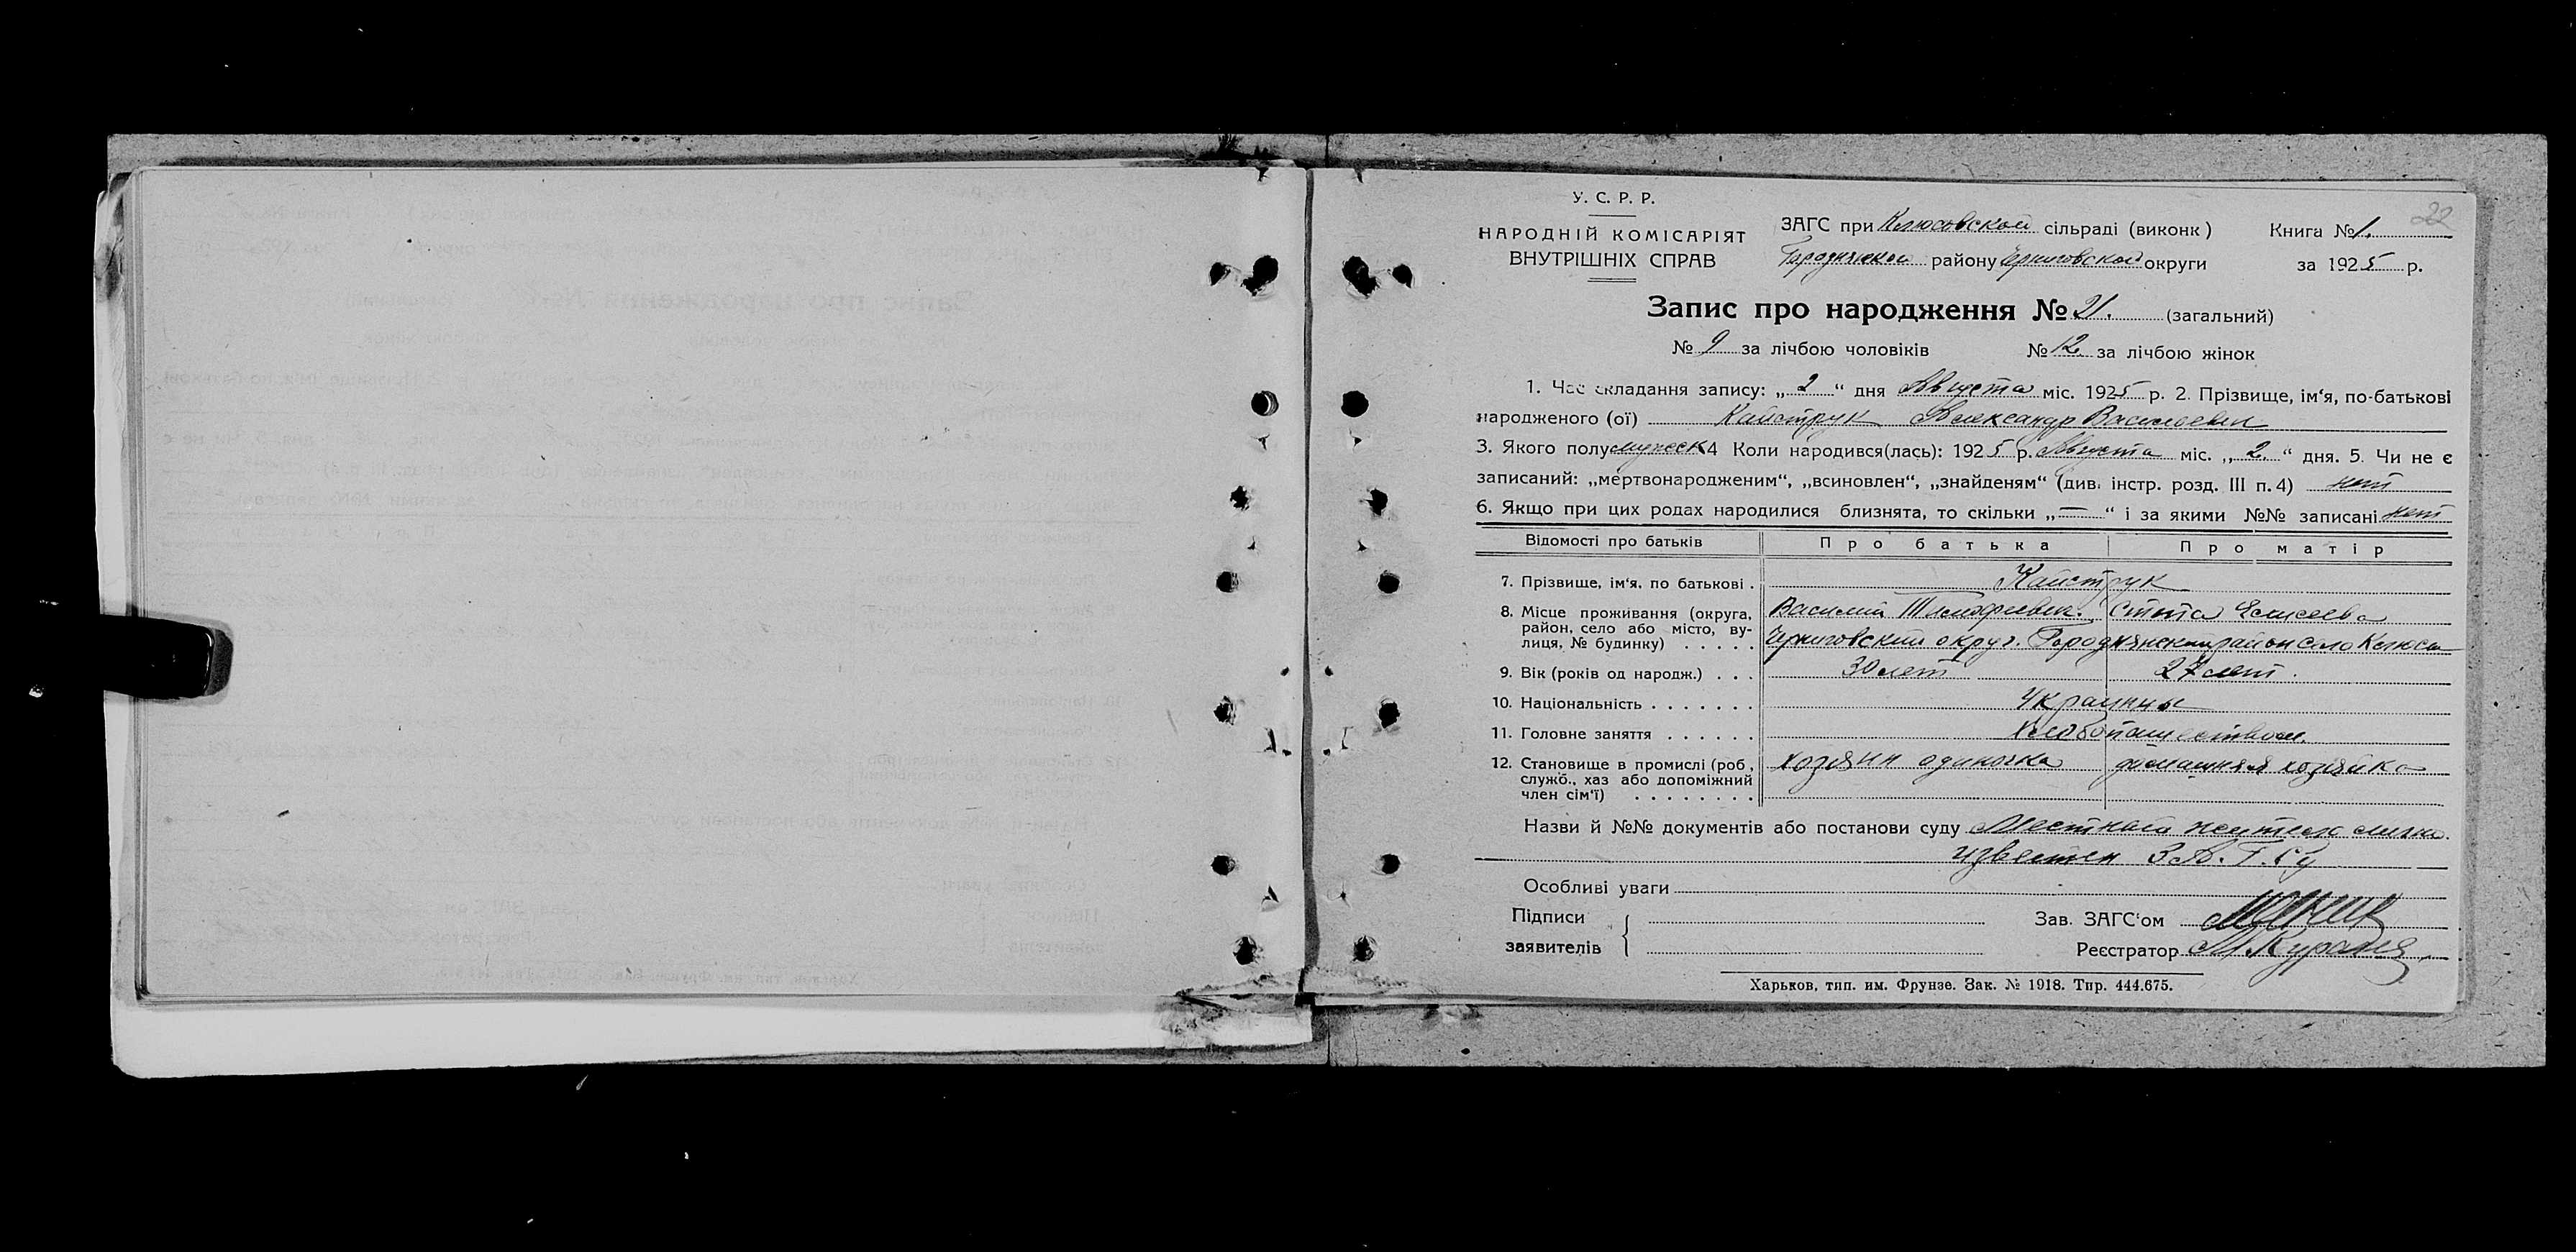 22
У. С. Р. Р.
НАРОДНІЙ КОМІСАРІЯТ
ВНУТРІШНІХ СПРАВ
ЗАГС при Клюсовской сільраді (виконк) Книга № 1.
Городнянском району Черниговской округи за 1925 р.
Запис про народження № 21. (загальний)
№ 9 за лічбою чоловіків № 12 за лічбою жінок
1. Час складання запису: „2“ дня Августа міс. 1925 р. 2. Прізвище, ім‘я, по-батькові
народженого (ої) Кайструк Александр Васильевич
3. Якого полу мужеск 4 Коли народився(лась): 1925 р. Августа міс. „2.“ дня. 5. Чи не є
записаний: „мертвонародженим“, „всиновлен“, „знайденям“ (див. інстр. розд. III п. 4) нет
6. Якщо при цих родах народилися близнята, то скільки „—“ і за якими №№ записані нет
Відомості про батьків Про батька Про матір
7. Прізвище, ім‘я, по батькові . Кайструк
8. Місце проживання (округа, район, село або місто, вулиця, № будинку) . . . . . Василий Елисеева
Черниговский округ. Городнянский район село Клюсы
9. Вік (років од народж.) . . . 30 лет 27 лет.
10. Національність . . . . . . . Украинцы
11. Головне заняття . . . . . . Хлебопашеством.
12. Становище в промислі (роб, служб., хаз або допоміжний член сім‘ї) . . . . . . . . хозяин одиночка домашняя хозяйка
Назви й №№ документів або постанови суду личн.
известен
Особливі уваги
Підписи
заявителів
Зав. ЗАГС‘ом
Реєстратор
Харьков, тип. им. Фрунзе. Зак. № 1918. Тир. 444.675.